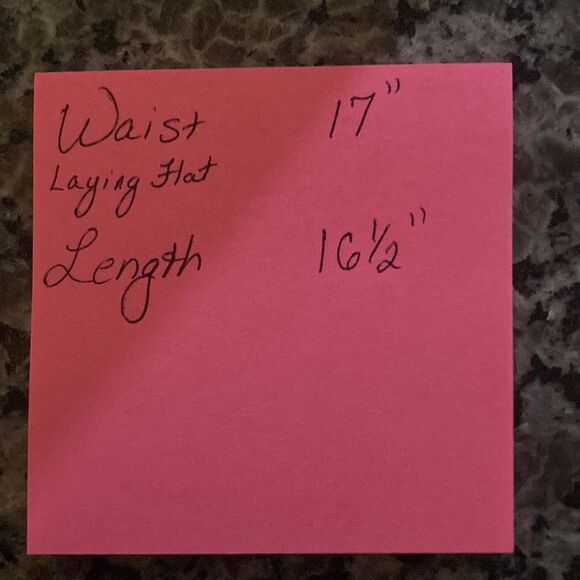 Waist 17"
Laying Flat
Length 16 1/2"